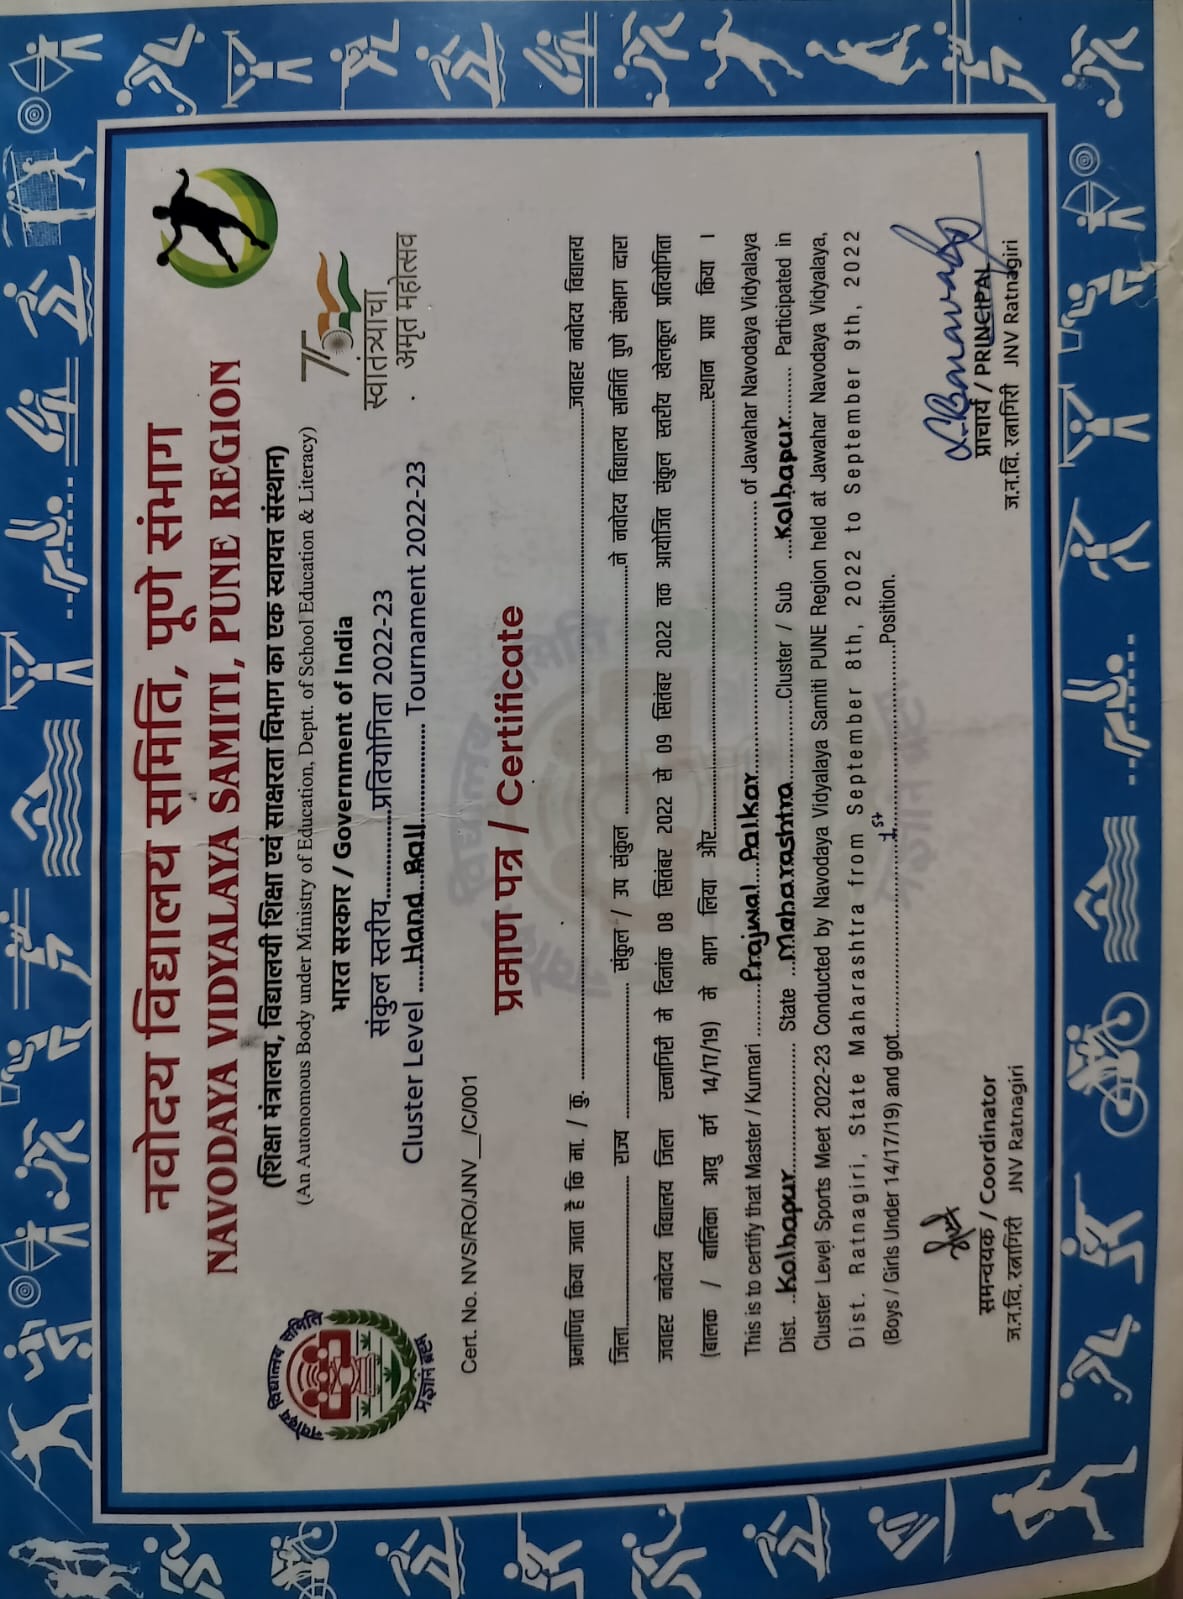 नवोदय विद्यालय समिति, पूणे संभाग
NAVODAYA VIDYALAYA SAMITI, PUNE REGION
(शिक्षा मंत्रालय, विद्यालयी शिक्षा एवं साक्षरता विभाग का एक स्वायत्त संस्थान)
(An Autonomous Body under Ministry of Education, Deptt. of School Education & Literacy)
भारत सरकार / Government of India
संकुल स्तरीय..............प्रतियोगिता 2022-23
Cluster Level .....Hand...Ball.................. Tournament 2022-23
नवोदय विद्यालय समिति
प्रज्ञानं ब्रह्म
75
स्वातंत्र्याचा
अमृत महोत्सव
Cert. No. NVS/RO/JNV_/C/001
प्रमाण पत्र / Certificate
प्रमाणित किया जाता है कि मा. / कु. ................................................................जवाहर नवोदय विद्यालय
जिला........................ राज्य ...................... संकुल / उप संकुल ................................ने नवोदय विद्यालय समिति पुणे संभाग व्दारा
जवाहर नवोदय विद्यालय जिला रत्नागिरी मे दिनांक 08 सितंबर 2022 से 09 सितंबर 2022 तक आयोजित संकुल स्तरीय खेलकूल प्रतियोगिता
(बालक / बालिका आयु वर्ग 14/17/19) मे भाग लिया और..........................................स्थान प्राप्त किया ।
This is to certify that Master / Kumari ..........Prajwal...Palkar........................................... of Jawahar Navodaya Vidyalaya
Dist. ..Kolhapur.................... State ..Maharashtra.............Cluster / Sub ....Kolhapur......... Participated in
Cluster Level Sports Meet 2022-23 Conducted by Navodaya Vidyalaya Samiti PUNE Region held at Jawahar Navodaya Vidyalaya,
Dist. Ratnagiri, State Maharashtra from September 8th, 2022 to September 9th, 2022
(Boys / Girls Under 14/17/19) and got..............................1st..............................Position.
समन्वयक / Coordinator
ज.न.वि. रत्नागिरी JNV Ratnagiri
प्राचार्य / PRINCIPAL
ज.न.वि. रत्नागिरी JNV Ratnagiri